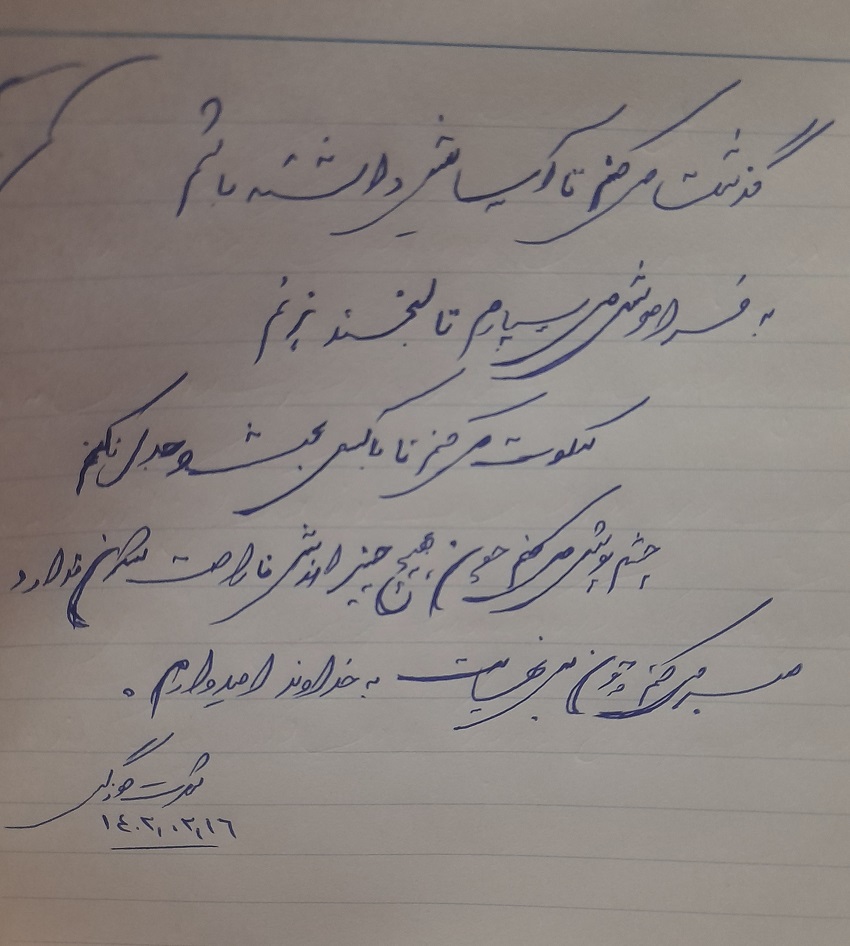 گذشت می کنم تا آسایش داشته باشم
به فراموشی می سپارم تا لبخند بزنم
سکوت می کنم تا با کسی بحث و جدل نکنم
چشم پوشی می کنم چون هیچ چیز ارزش ناراحت شدن ندارد
صبر می کنم چون بی نهایت به خداوند امیدوارم .
۱٤۰۲,۰۲,۱٦